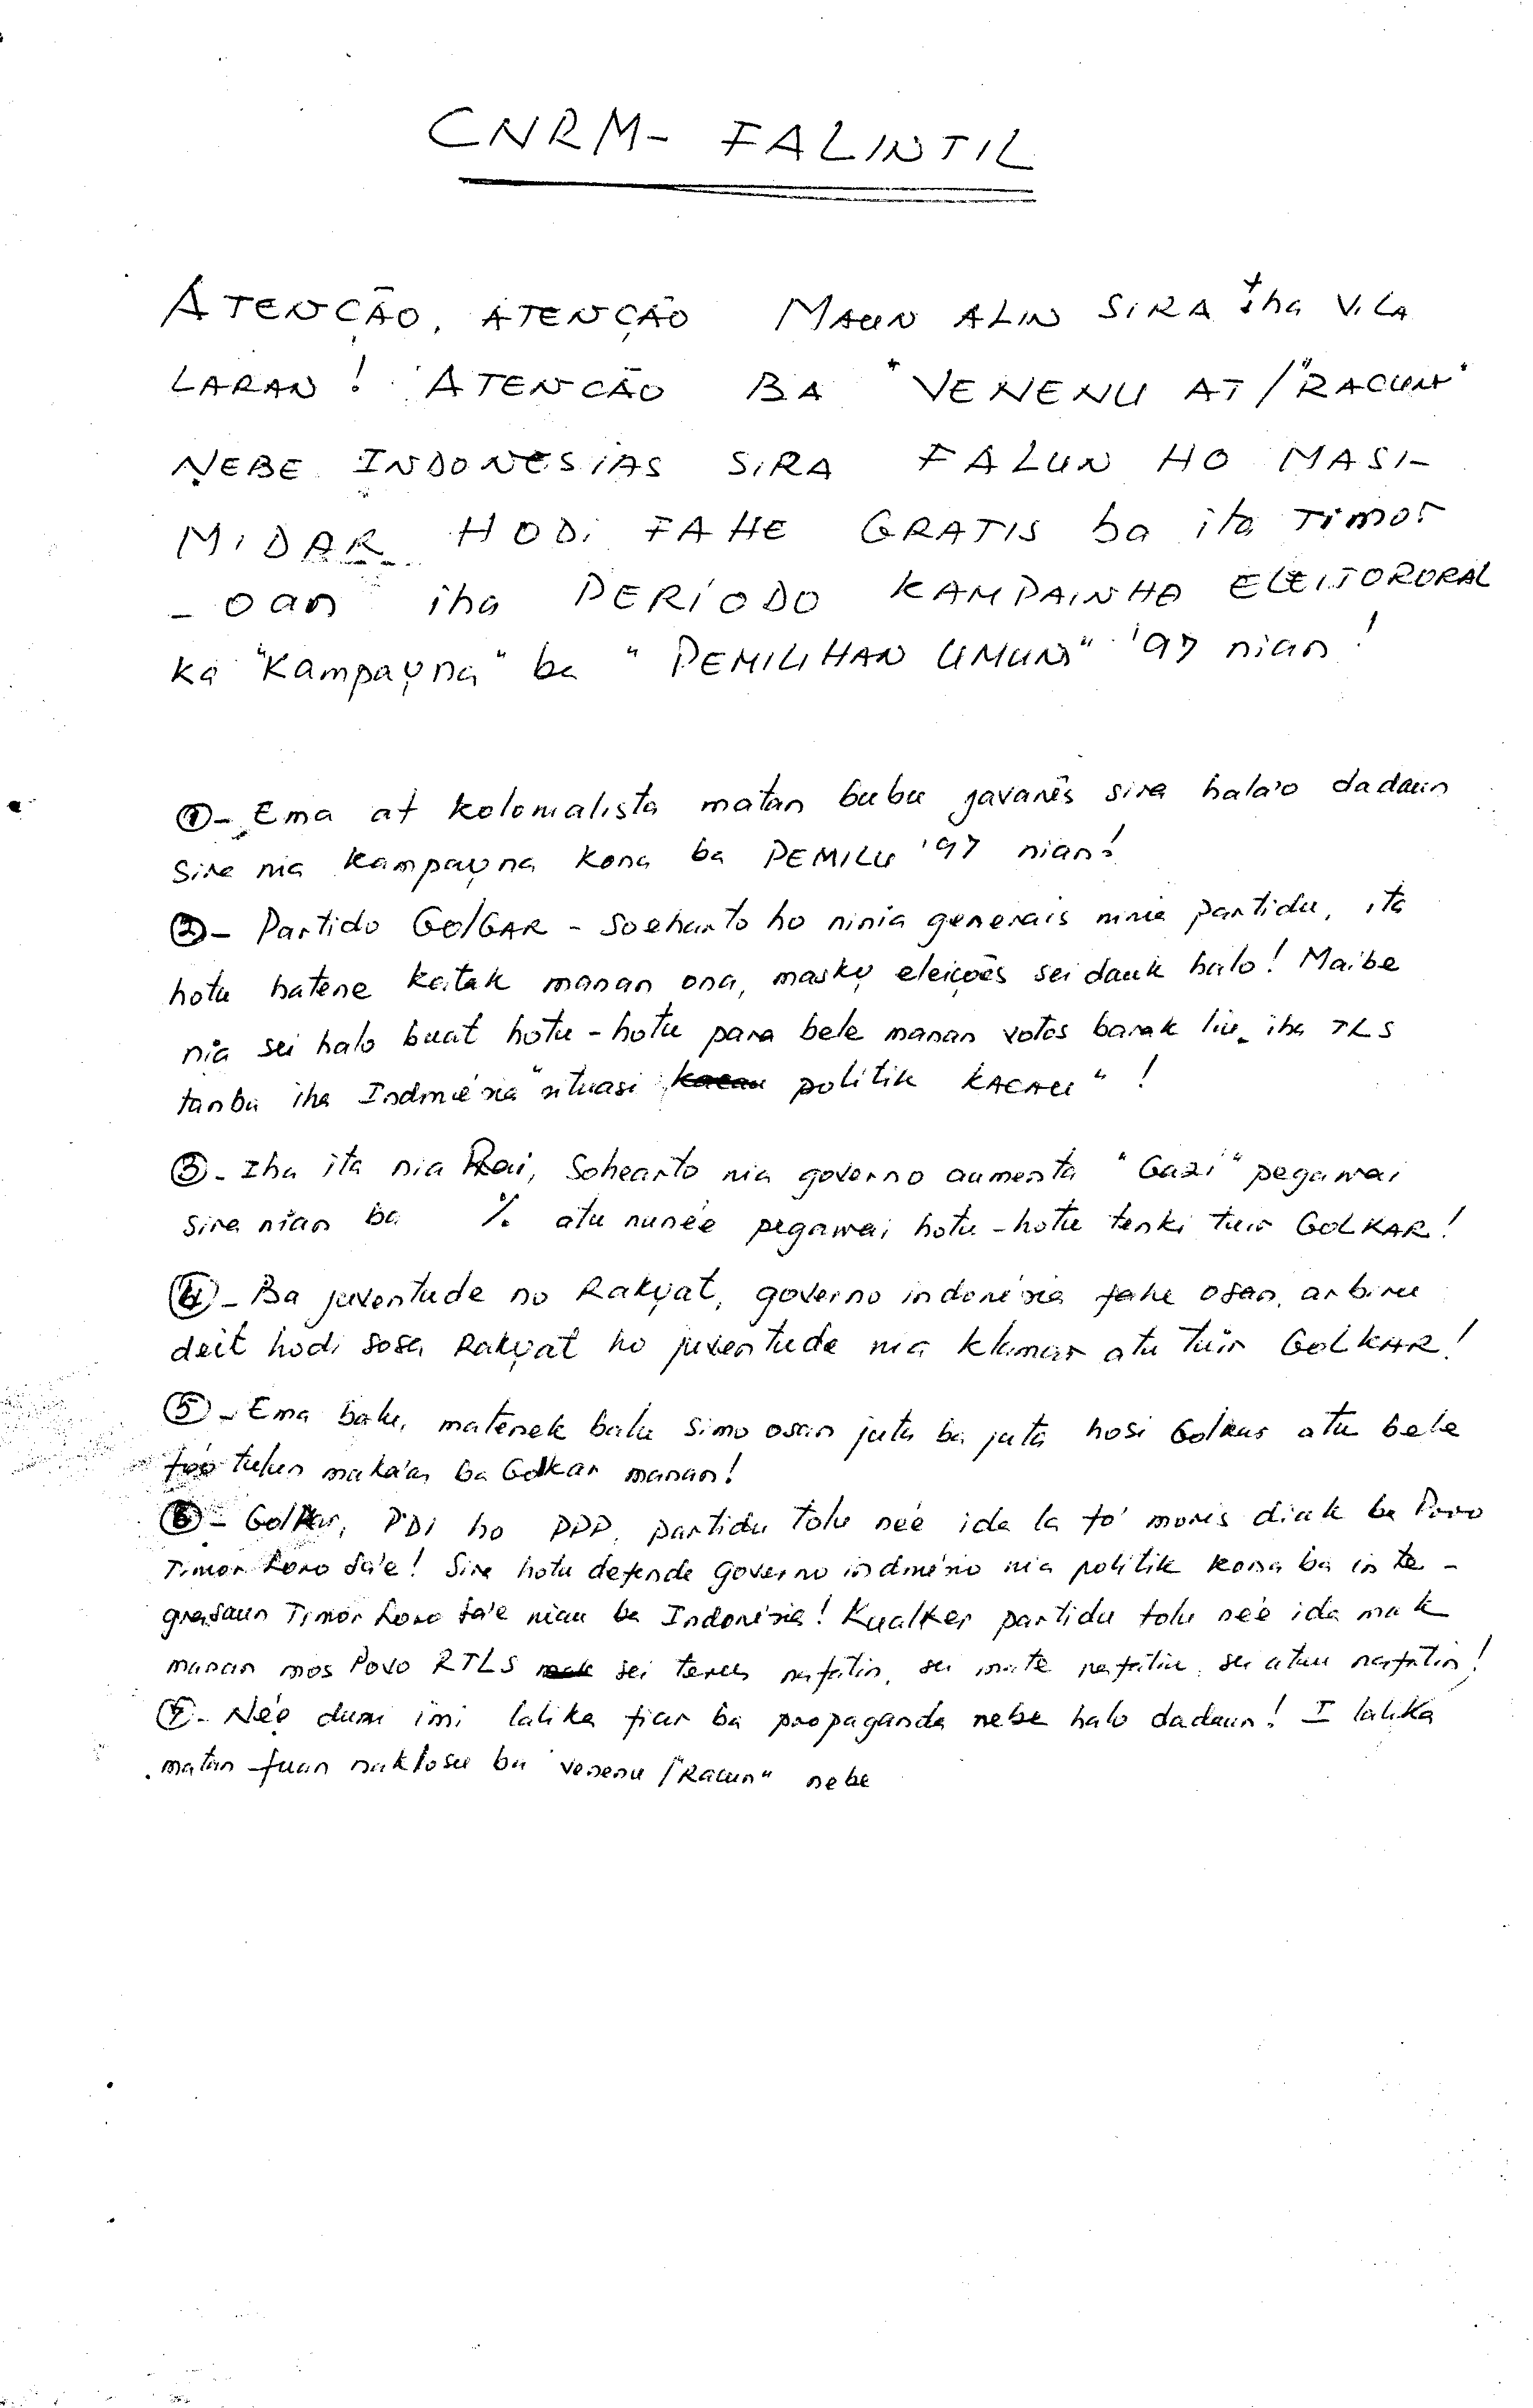 CNRM - FALINTIL
ATENCÃO, ATENÇÃO MAUN ALIN SIRA iha VILA
LARAN! ATENCÃO BA "VENENU AT/"RACUN"
NEBE INDONESIAS SIRA FALUN HO MASI-
MIDAR HODI FAHE GRATIS ba ita Timor
- oan iha PERÍODO KAMPAINHA ELEITORORAL
ka "Kampayna" ba "PEMILIHAN UMUM" '97 nian!
①- Ema at kolonialista matan bubu javanês sira hala'o dadaun
sira nia kampayna kona ba PEMILU '97 nian!
②- Partido GolGAR - Soeharto ho ninia generais ninia partidu, ita
hotu hatene katak manan ona, masky eleições sei dauk halo! Maibe
nia sei halo buat hotu-hotu para bele manan votos barak liu iha TLS
tanba iha Indonésia "situasi politik KACAU"!
③- Iha ita nia Rai, Sohearto nia governo aumenta "Gazi" pegawai
sira nian ba % atu nunée pegawai hotu-hotu tenki tuir GOLKAR!
④- Ba juventude no Rakyat, governo indonésia fahe osan arbiru
deit hodi sosa Rakyat ho juventude nia klamar atu tuir GOLKAR!
⑤- Ema balu, matenek balu simo osan juta ba juta hosi Golkar atu bele
fóo tulun maka'as ba Golkar manan!
⑥- Golkar, PDI ho PPP, partidu tolu neé ida la fó moris diak ba Povo
Timor Loro Sa'e! Sira hotu defende governo indonésio nia politik kona ba inte-
grasaun Timor Loro Sa'e nian ba Indonésia! Kualker partidu tolu neé ida mak
manan mos Povo RTLS sei terus nafatin, sei mate nafatin, sei atan nafatin!
⑦- Neé duni imi lalika fiar ba propaganda nebe halo dadaun! I lalika
matan-fuan naklosu ba venenu /"Racun" nebe